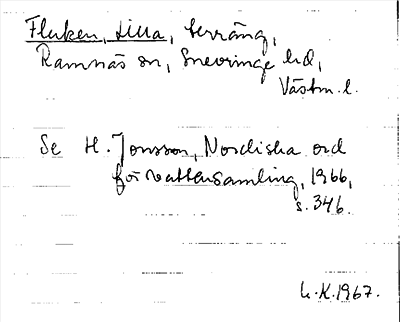 Fluken, Lilla, terräng,
Ramnäs sn, Snevringe hd,
Västm. l.
Se H. Jonsson, Nordiska ord
för vattensamling, 1966,
s. 346.
L.K.1967.